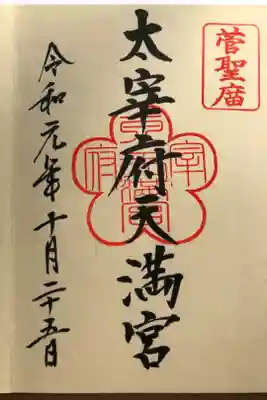 菅聖廟
太宰府天満宮
令和元年十月二十五日